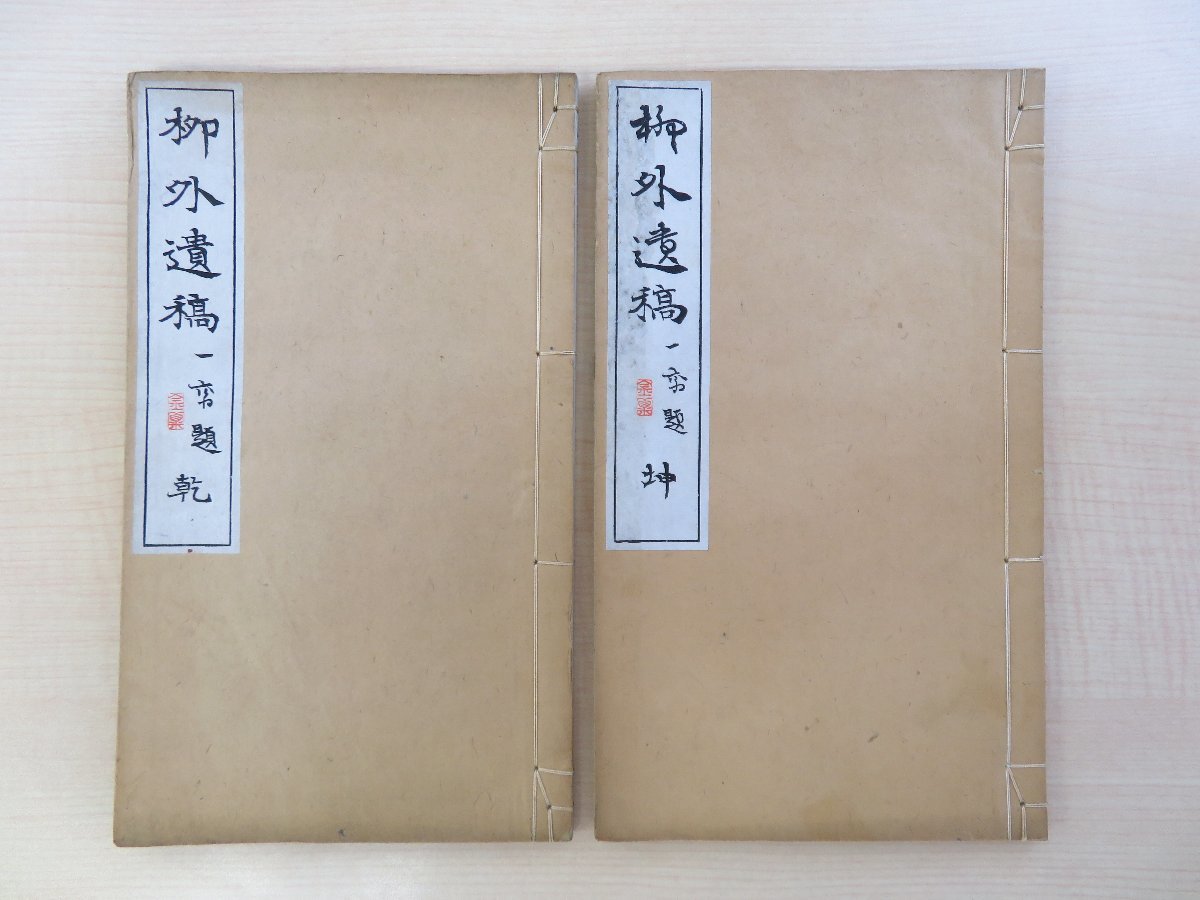 柳外遺稿 一 題 乾
柳外遺稿 一 題 坤